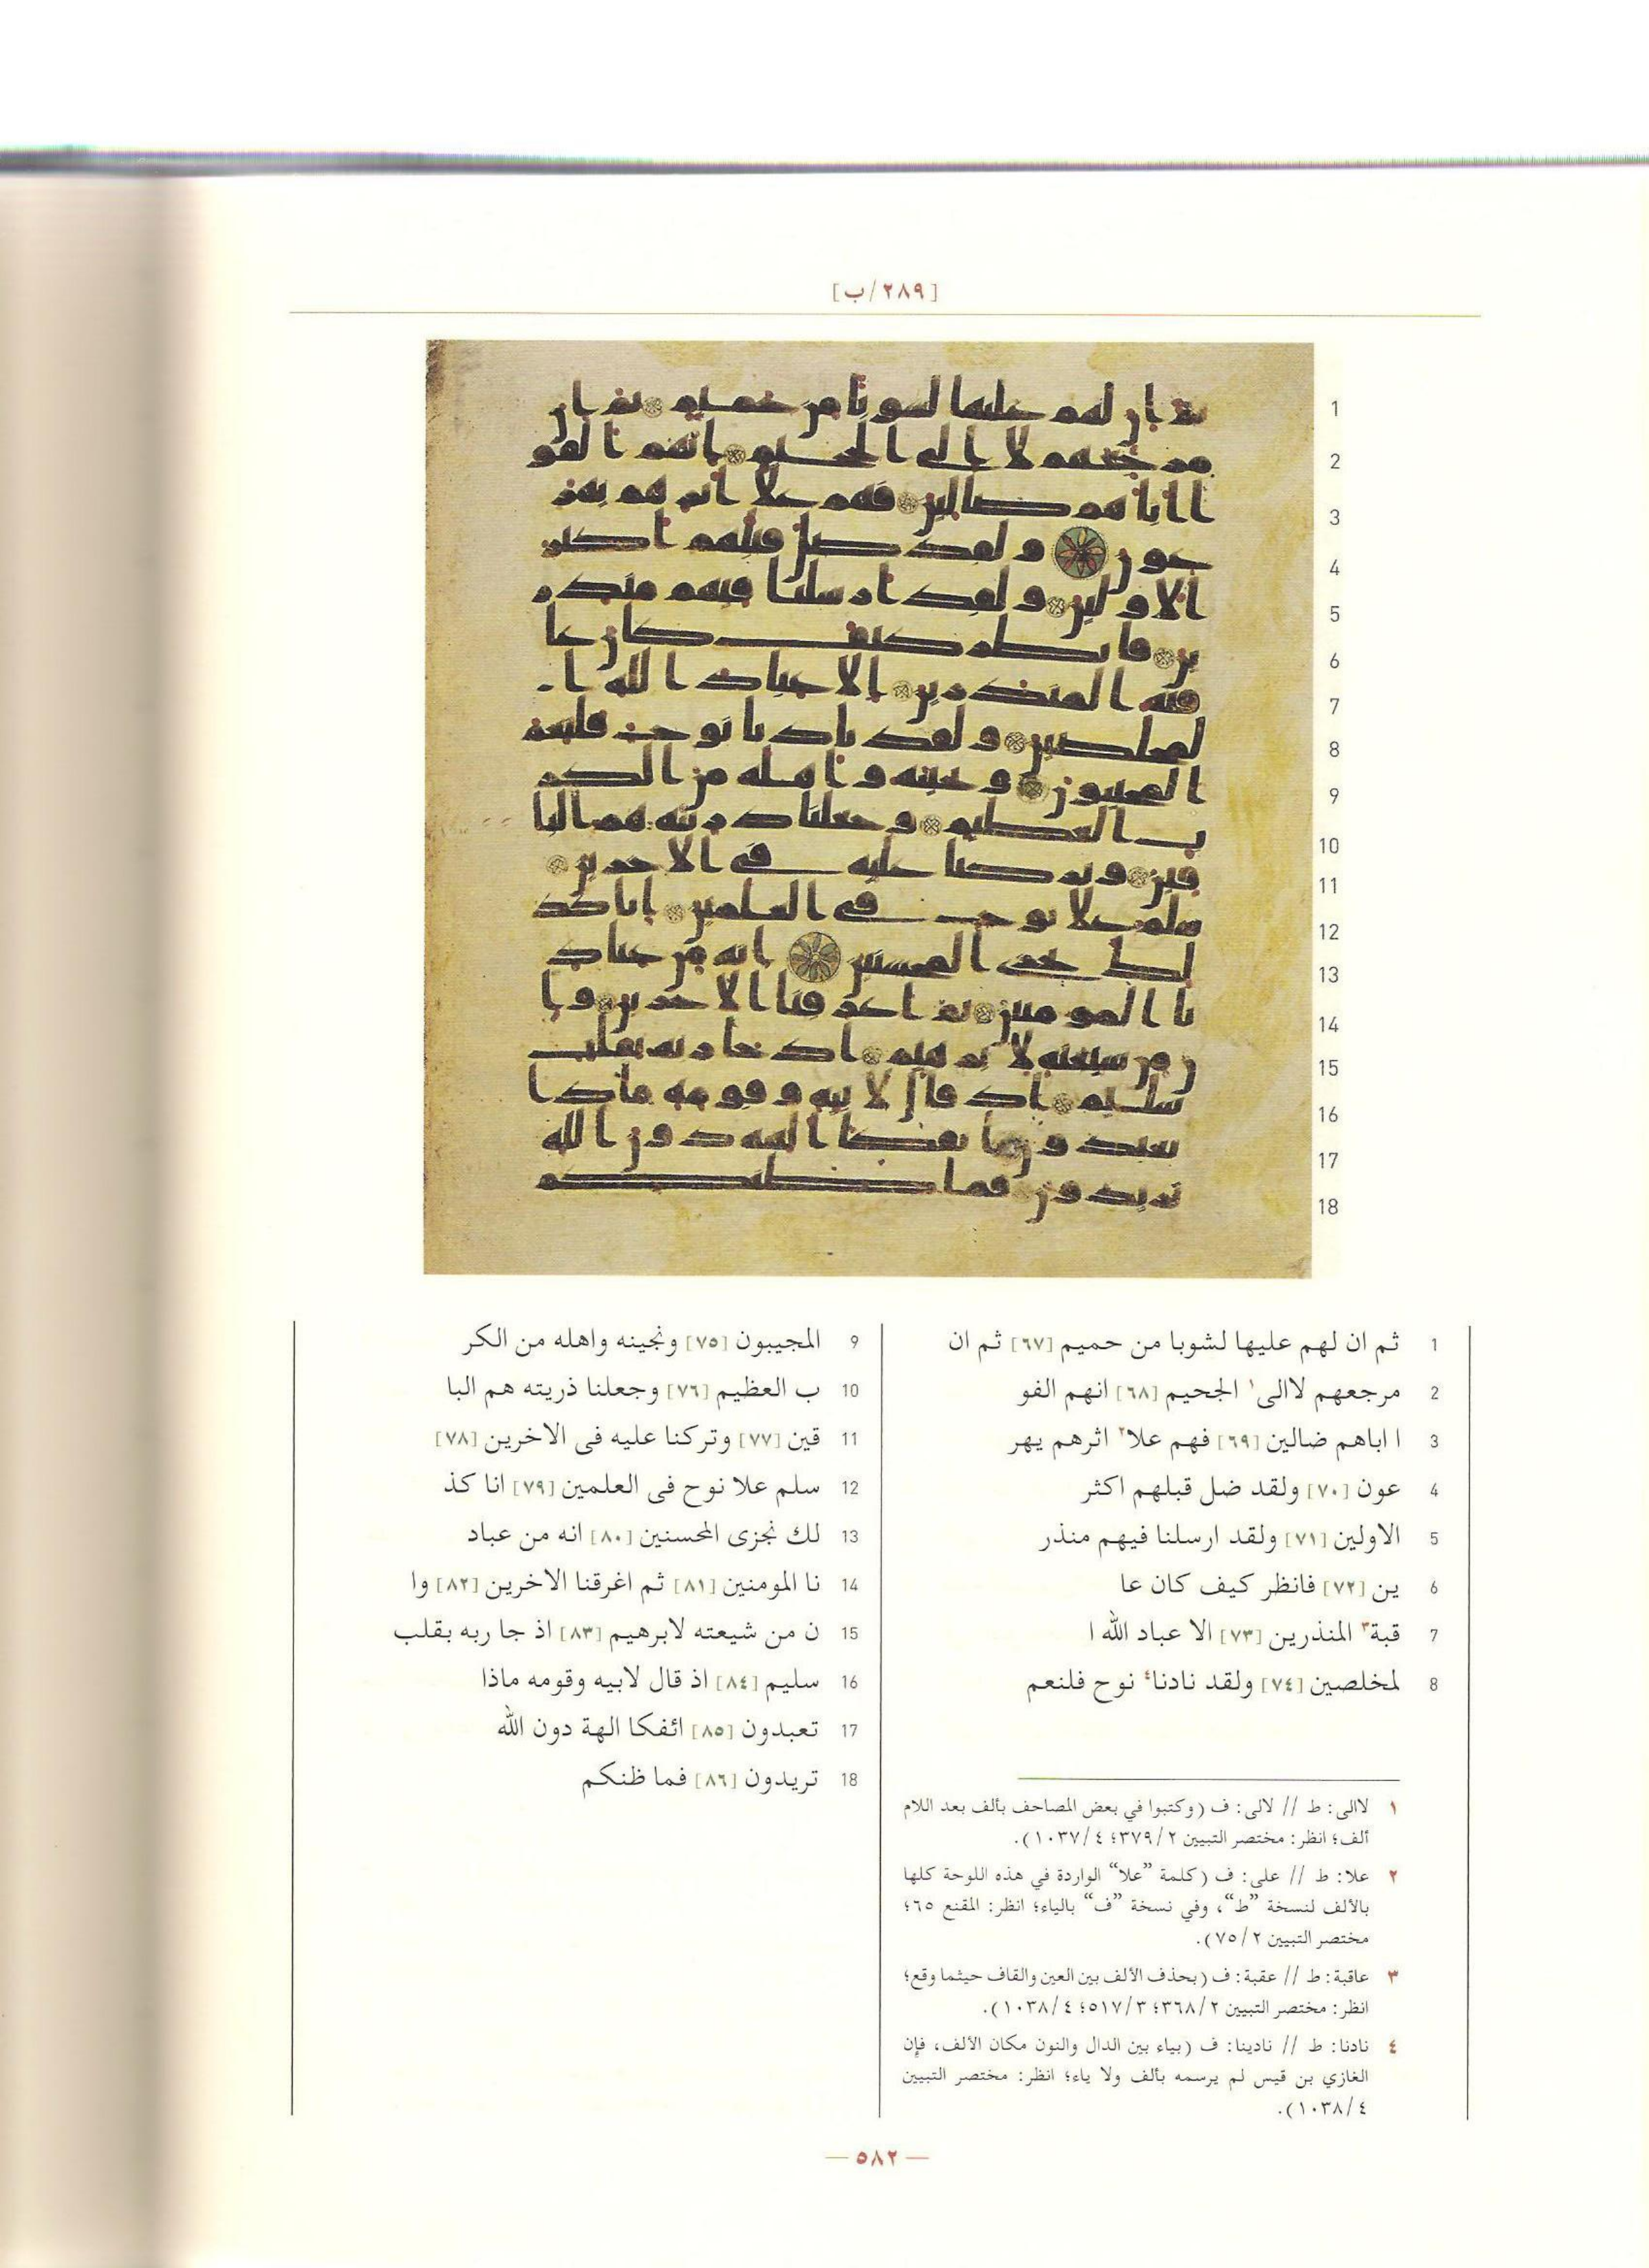 [٢٨٩/ب]
1 ثم ان لهم عليها لشوبا من حميم [٦٧] ثم ان
2 مرجعهم لاالى١ الجحيم [٦٨] انهم الفو
3 ا اباهم ضالين [٦٩] فهم علا٢ اثرهم يهر
4 عون [٧٠] ولقد ضل قبلهم اكثر
5 الاولين [٧١] ولقد ارسلنا فيهم منذر
6 ين [٧٢] فانظر كيف كان عا
7 قبة٣ المنذرين [٧٣] الا عباد الله ا
8 لمخلصين [٧٤] ولقد نادنا٤ نوح فلنعم
9 المجيبون [٧٥] ونجينه واهله من الكر
10 ب العظيم [٧٦] وجعلنا ذريته هم البا
11 قين [٧٧] وتركنا عليه فى الاخرين [٧٨]
12 سلم علا نوح فى العلمين [٧٩] انا كذ
13 لك نجزى المحسنين [٨٠] انه من عباد
14 نا المومنين [٨١] ثم اغرقنا الاخرين [٨٢] وا
15 ن من شيعته لابرهيم [٨٣] اذ جا ربه بقلب
16 سليم [٨٤] اذ قال لابيه وقومه ماذا
17 تعبدون [٨٥] ائفكا الهة دون الله
18 تريدون [٨٦] فما ظنكم
١ لاالى: ط // لالى: ف (وكتبوا في بعض المصاحف بألف بعد اللام
ألف؛ انظر: مختصر التبيين ٣٧٩/٢؛ ١٠٣٧/٤).
٢ علا: ط // على: ف (كلمة ”علا“ الواردة في هذه اللوحة كلها
بالألف لنسخة ”ط“، وفي نسخة ”ف“ بالياء؛ انظر: المقنع ٦٥؛
مختصر التبيين ٧٥/٢).
٣ عاقبة: ط // عقبة: ف (بحذف الألف بين العين والقاف حيثما وقع؛
انظر: مختصر التبيين ٣٦٨/٢؛ ٥١٧/٣؛ ١٠٣٨/٤).
٤ نادنا: ط // نادينا: ف (بياء بين الدال والنون مكان الألف، فإن
الغازي بن قيس لم يرسمه بألف ولا ياء؛ انظر: مختصر التبيين
١٠٣٨/٤).
— ٥٨٢ —